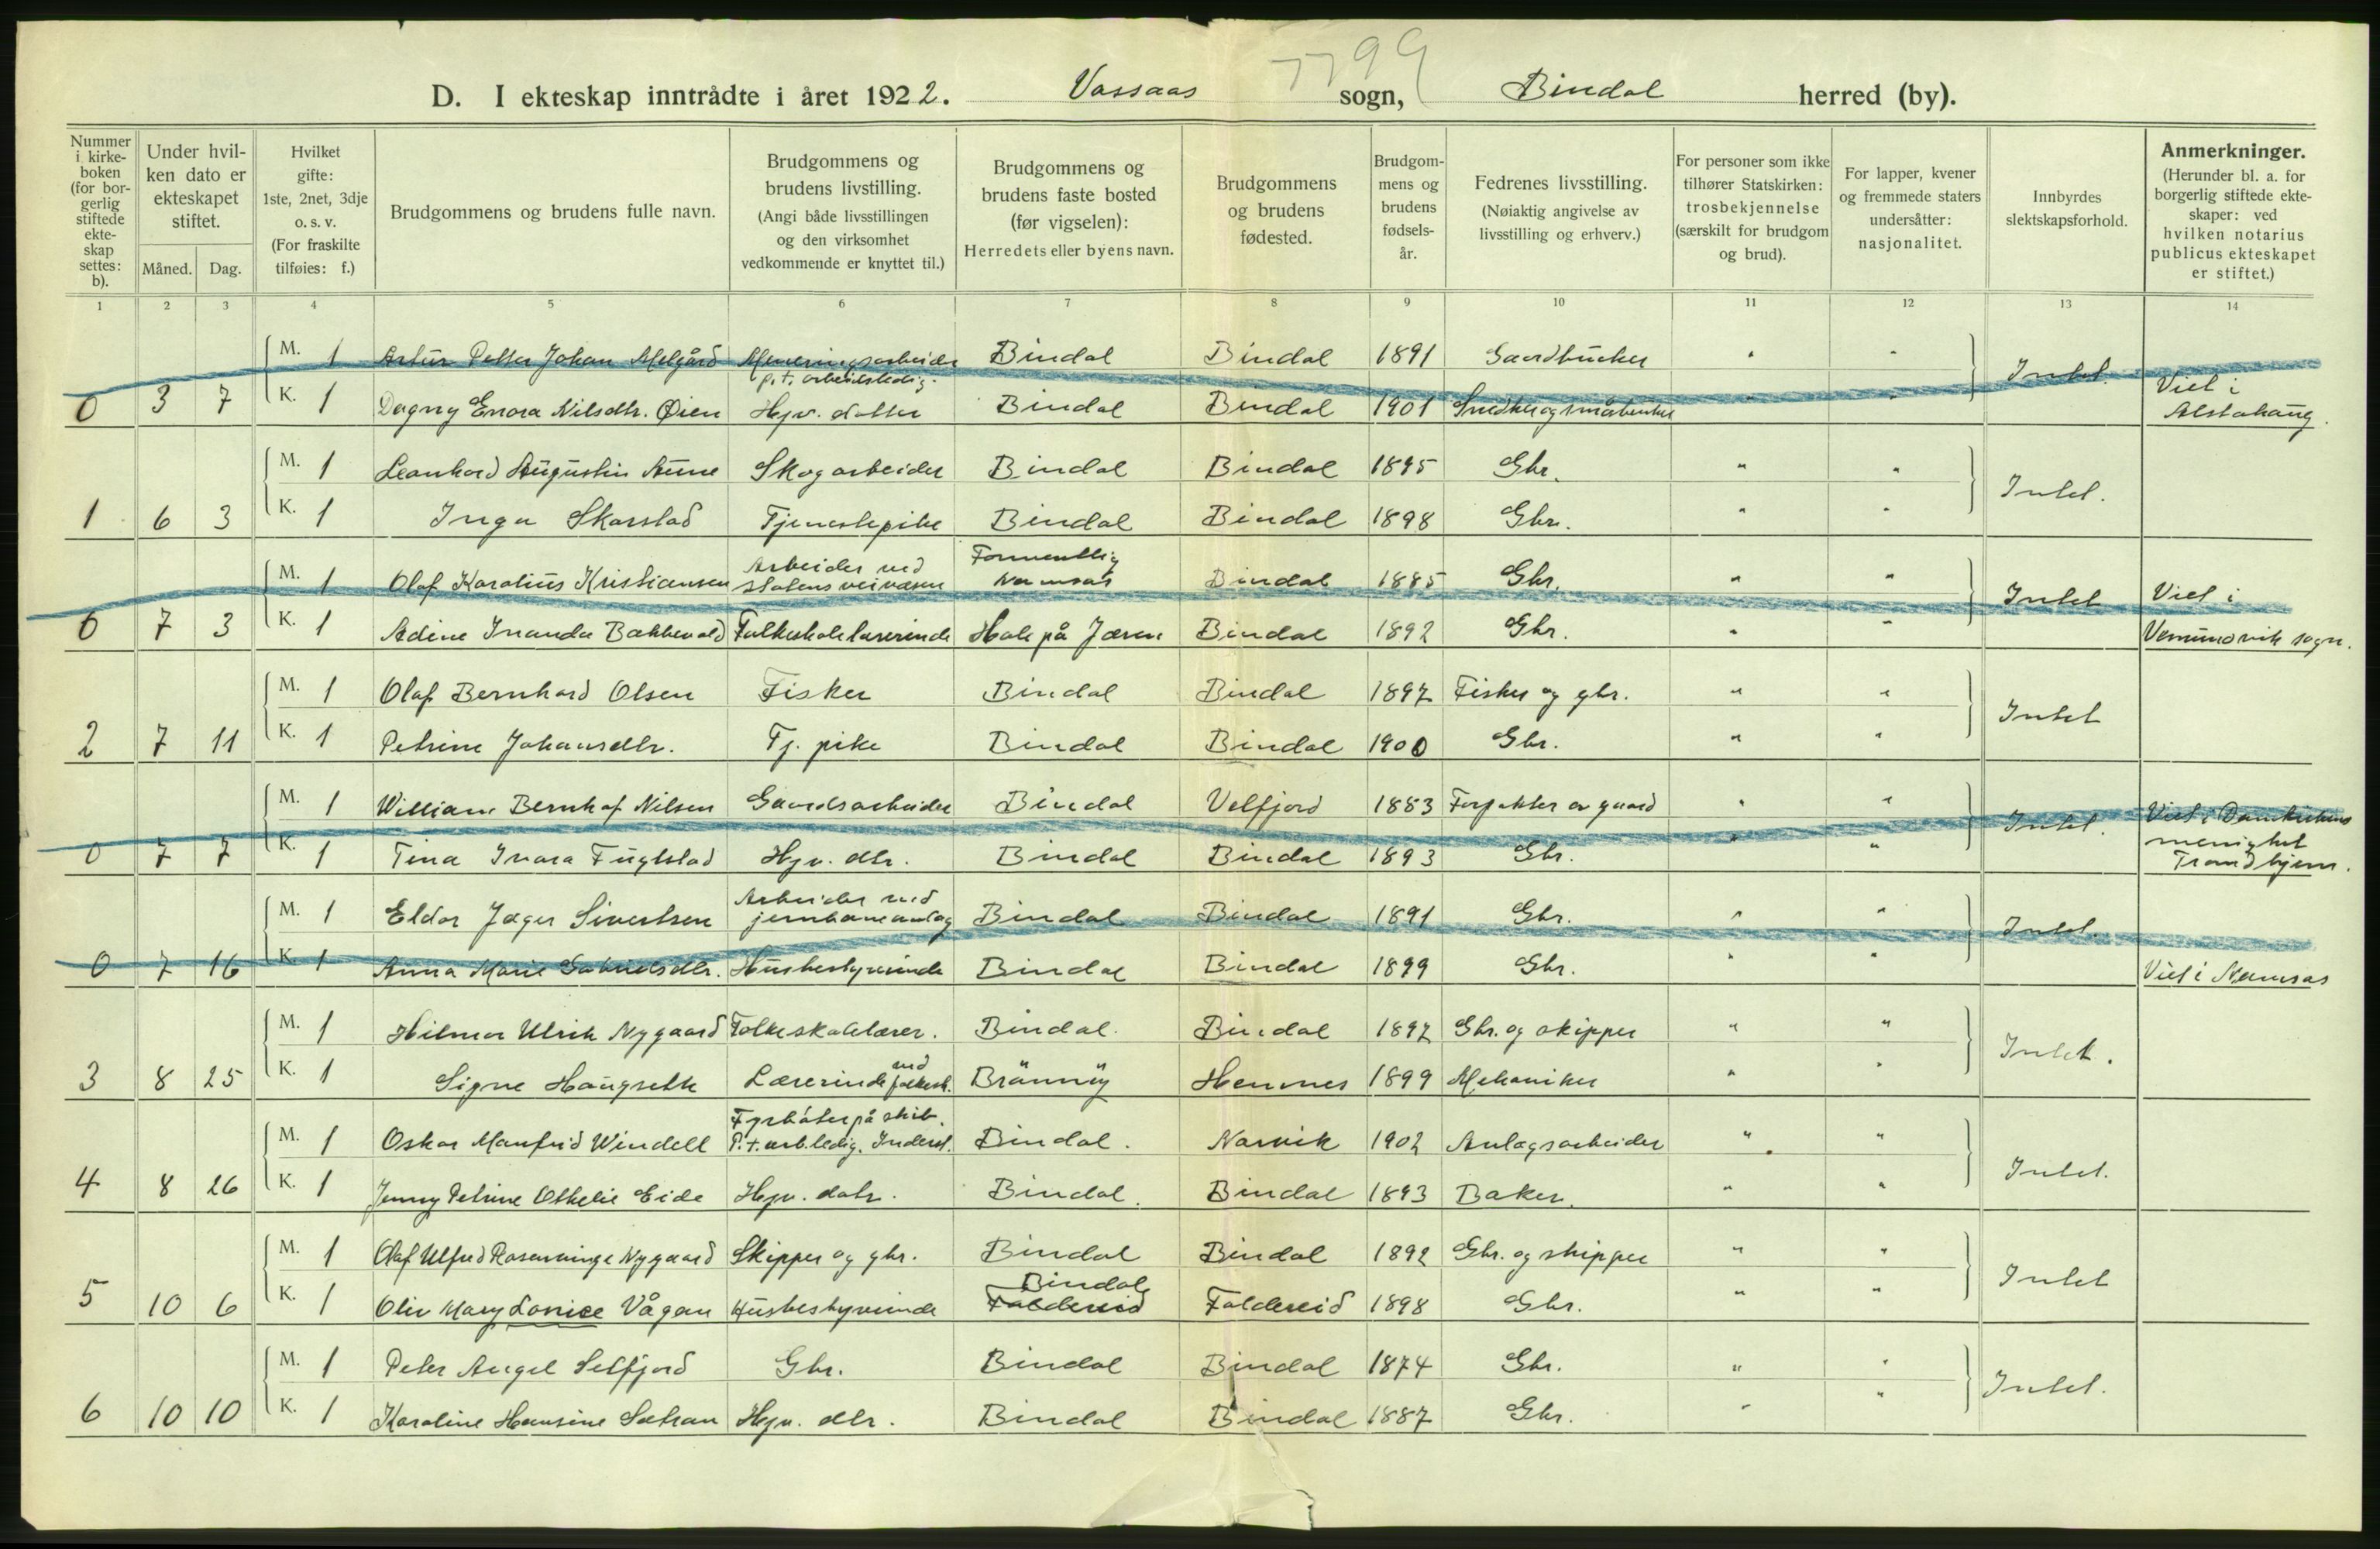 7799
D. I ekteskap inntrådte i året 1922. Vassaas sogn, Bindal herred (by).
Nummer i kirke-boken (for bor-gerlig stiftede ekte-skap settes: b).
Under hvil-ken dato er ekteskapet stiftet.
Måned. Dag.
Hvilket gifte: 1ste, 2net, 3dje o. s. v. (For fraskilte tilføies: f.)
Brudgommens og brudens fulle navn.
Brudgommens og brudens livstilling. (Angi både livsstillingen og den virksomhet vedkommende er knyttet til.)
Brudgommens og brudens faste bosted (før vigselen): Herredets eller byens navn.
Brudgommens og brudens fødested.
Brudgom-mens og brudens fødsels-år.
Fedrenes livsstilling. (Nøiaktig angivelse av livsstilling og erhverv.)
For personer som ikke tilhører Statskirken: trosbekjennelse (særskilt for brudgom og brud).
For lapper, kvener og fremmede staters undersåtter: nasjonalitet.
Innbyrdes slektskapsforhold.
Anmerkninger. (Herunder bl. a. for borgerlig stiftede ekte-skaper: ved hvilken notarius publicus ekteskapet er stiftet.)
1 2 3 4 5 6 7 8 9 10 11 12 13 14
M. 1 Artur Petter Johan Melgård Mureringsarbeider p.t. arbeidsledig. Bindal Bindal 1891 Gaardbruker " " Intet.
0 3 7 K. 1 Dagny Enora Nilsdtr. Øien Hjv. datter Bindal Bindal 1901 Snedker og småbruker " " Viet i Alstahaug.
M. 1 Leonhard Augustin Aune Skogarbeider Bindal Bindal 1895 Gbr. " " Intet.
1 6 3 K. 1 Inga Skarstad Tjenestepike Bindal Bindal 1898 Gbr. " "
M. 1 Olaf Karolius Kristiansen Arbeider ved statens veivæsen Formentlig Namsos Bindal 1885 Gbr. " " Intet Viet i
0 7 3 K. 1 Adine Inanda Bakkevold Folkeskolelærerinde Hole på Jæren Bindal 1892 Gbr. " " Vemundvik sogn.
M. 1 Olaf Bernhard Olsen Fisker Bindal Bindal 1897 Fisker og gbr. " " Intet
2 7 11 K. 1 Petrine Johansdtr. Tj. pike Bindal Bindal 1900 Gbr. " "
M. 1 William Bernhof Nilsen Gaardsarbeider Bindal Velfjord 1883 Forpakter av gaard " " Intet. Viet i Domkirkens
0 7 7 K. 1 Tina Ivara Fuglstad Hjv. dtr. Bindal Bindal 1893 Gbr. " " menighet Trondhjem.
M. 1 Eldor Jæger Sivertsen Arbeider ved jernbaneanlæg Bindal Bindal 1891 Gbr. " " Intet.
0 7 16 K. 1 Anna Marie Gabrielsdtr. Husbestyrerinde Bindal Bindal 1899 Gbr. " " Viet i Namsos
M. 1 Hilmar Ulrik Nygaard Folkeskolelærer. Bindal. Bindal 1897 Gbr. og skipper " " Intet.
3 8 25 K. 1 Signe Haugseth Lærerinde ved folkesk. Brönnöy Hemnes 1899 Mekaniker " "
M. 1 Oskar Manfred Windell Fyrbøter på skib. P.t. arb.ledig. Inderst. Bindal. Narvik 1902 Anlægsarbeider " " Intet.
4 8 26 K. 1 Jenny Petrine Othelie Eide Hjv. datr. Bindal. Bindal 1893 Baker. " "
M. 1 Olaf Ulfred Rosenvinge Nygaard Skipper og gbr. Bindal Bindal 1892 Gbr. og skipper " " Intet
5 10 6 K. 1 Oliv Mary Lovise Vågan Husbestyrerinde Bindal Foldereid Foldereid 1898 Gbr. " "
M. 1 Peter Angel Selfjord Gbr. Bindal Bindal 1874 Gbr. " " Intet.
6 10 10 K. 1 Karoline Hansine Sætran Hjv. dtr. Bindal Bindal 1887 Gbr. " "